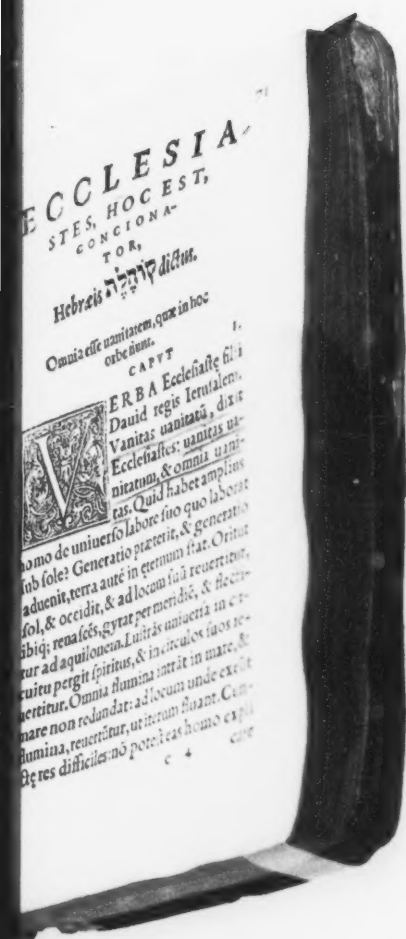 71
ECCLESIA
STES, HOC EST,
CONCIONA-
TOR,
Hebræis קוֹהֶלֶת dictus.
Omnia esse uanitatem, quæ in hoc
orbe fiunt.
CAPVT I.
VERBA Ecclesiastę filii
Dauid regis Ierusalem.
Vanitas uanitatū, dixit
Ecclesiastes: uanitas ua-
nitatum, & omnia uani-
tas. Quid habet amplius
homo de uniuerso labore suo quo laborat
sub sole? Generatio præterit, & generatio
aduenit, terra autē in ęternum stat. Oritur
sol, & occidit, & ad locum suū reuertitur,
ibiq; renascēs, gyrat per meridiē, & flecti-
tur ad aquilonem. Lustrās uniuersa in cir-
cuitu pergit spiritus, & in circulos suos re-
uertitur. Omnia flumina intrāt in mare, &
mare non redundat: ad locum unde exeūt
flumina, reuertūtur, ut iterum fluant. Cun-
ctę res difficiles: nō potest eas homo expli
c 4 care